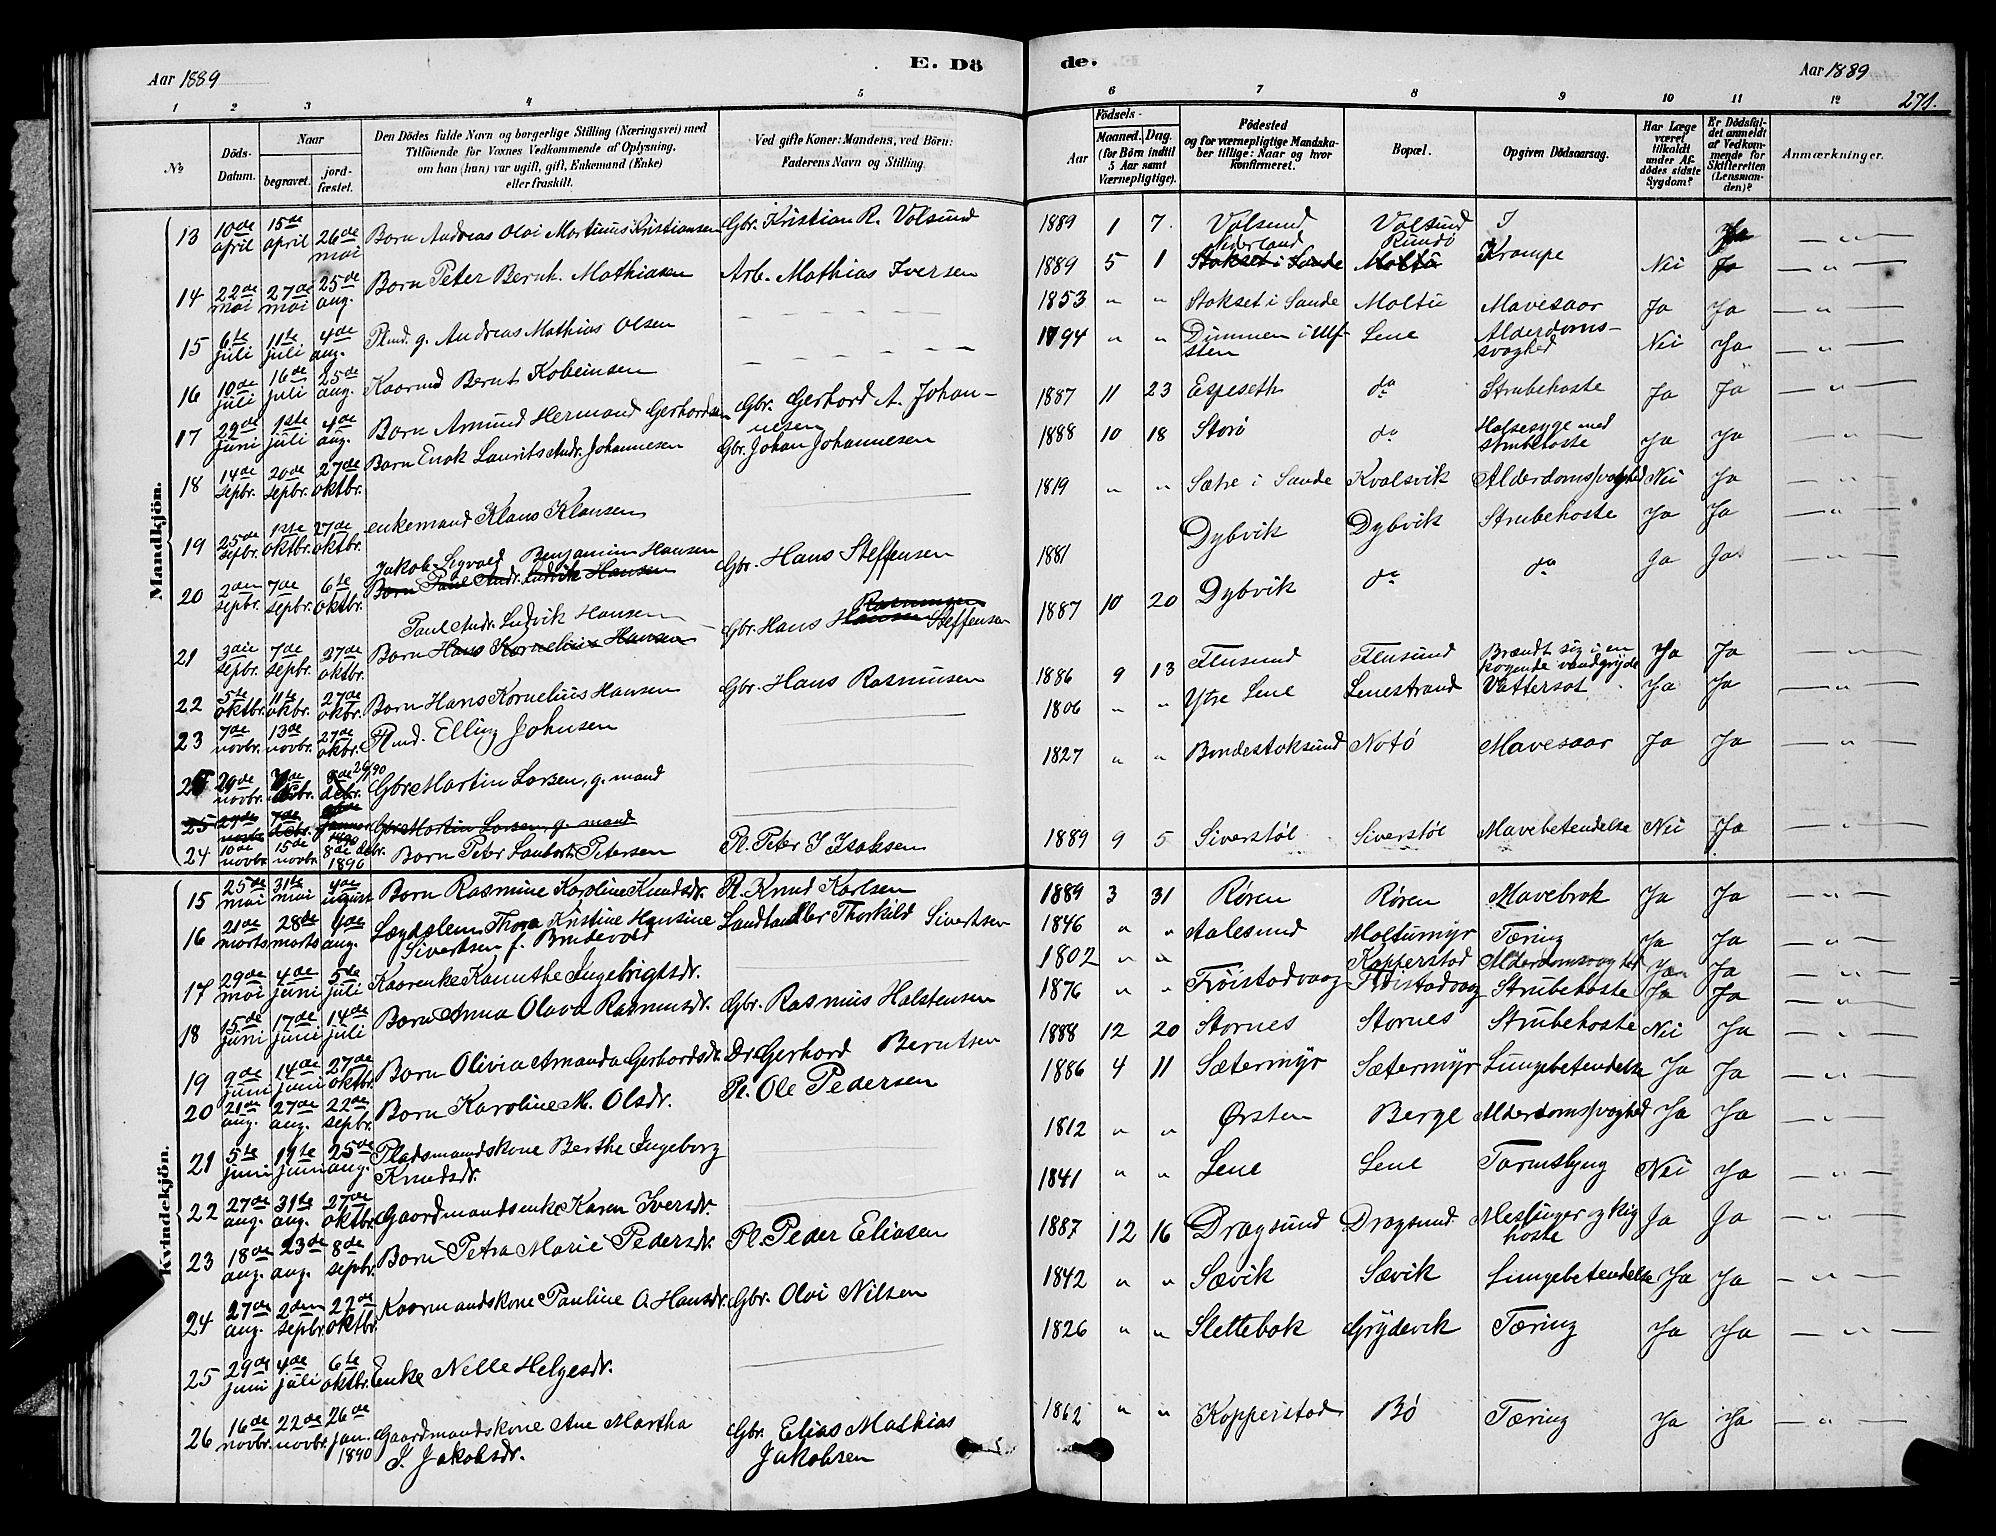 Aar 1889
E. Dö
de.
Aar 1889
271.
1 2 3 4 5
6 7 8 9 10 11 12
№
Döds-Datum.
Naar
begravet.
jord-fæstet.
Den Dödes fulde Navn og borgerlige Stilling (Næringsvei) med
Tilföiende for Voxnes Vedkommende af Oplysning,
om han (hun) var ugift, gift, Enkemand (Enke)
eller fraskilt.
Ved gifte Koner: Mandens, ved Börn:
Faderens Navn og Stilling.
Födsels-
Aar
Maaned.
Dag.
(for Börn indtil
5 Aar samt
Værnepligtige).
Födested
og for værnepligtige Mandska-
ber tillige: Naar og hvor
konfirmeret.
Bopæl.
Opgiven Dödsaarsag.
Har Læge
været
tilkaldt
under Af-
dödes sidste
Sygdom?
Er Dödsfal-
det anmeldt
af Vedkom-
mende for
Skifteretten
(Lensman-
den)?
Anmærkninger.
Mandkjön.
13 10de april 15de april 26de mai Barn Andreas Olai Martinus Kristiansen Gbr. Kristian R. Volsund
14 22de mai 27de mai 25de aug. Barn Peter Bernt. Mathiasen Arb. Mathias Iversen
15 6te juli 11te juli 4de aug. Plmd. g. Andreas Mathias Olsen
16 10de juli 16de juli 25de aug. Kaarmd Bernt Kobeinsen
17 29de juni 1ste juli 4de aug. Barn Amund Hermand Gerhardsen Gbr. Gerhard A. Johan-
nesen
18 14de sepbr. 20de sepbr. 27de oktbr. Barn Enok Laurits Andr. Johannesen Gbr. Johan Johannesen
19 25de sepbr. 1ste oktbr. 27de oktbr. enkemand Klaus Klausen
Jakob Sigvald Benjamin Hansen
20 2den sepbr. 7de sepbr. 6te oktbr. Barn Paul Andr. Ludvik Hansen Gbr. Hans Steffensen
Paul Andr. Ludvik Hansen Rasmusen
21 3die sepbr. 7de sepbr. 27de oktbr. Barn Hans Kornelius Hansen Gbr. Hans Hansen Steffensen
22 5te oktbr. 11te okbr. 27de oktbr. Barn Hans Kornelius Hansen Gbr. Hans Rasmusen
23 7de novbr. 13de novbr. 27de okbr. Plmd. Elling Johnsen
29de novbr. 26/90 Gbr Martin Larsen, g. mand
25 7de debr. Gbr Martin Larsen, g. mand
24 10de novbr. 15de novbr. 8de debr. 1890 Barn Peter Laubert Petersen Pl. Peter I Isaksen
1889 1 7 Volsund Volsund
Nederland Rundö
1889 5 1 Stokset i Sande Moltu Krampe Nei Ja
1853 " " Stokset i Sande Moltu Mavesaar Ja Ja — " —
1794 " " Dimmen i Ulf-
sten Lene Alderdoms-
svaghed Nei Ja — " —
1887 11 23 Espeseth do Strubehoste Ja Ja — " —
1888 10 18 Storö do Halsesyge med
strubehoste Ja Ja — " —
1819 " " Sætre i Sande Kvalsvik Alderdomssvaghed Nei Ja — " —
1881 Dybvik Dybvik Strubehoste Ja Ja — " —
1887 10 20 Dybvik do do Ja Ja — " —
1886 9 13 Flusund Flusund Brændt sig i en
kogende vandgryde Ja Ja — " —
1806 " " Ytre Lene Lenestrand Vattersot Ja Ja — " —
1827 " " Bondestoksund Notö Mavesaar Ja Ja — " —
1889 9 5 Siverstöl Siverstöl Mavebetendelse Nei Ja — " —
Kvindekjön.
15 25de mai 31te mai 4de august Barn Rasmine Karoline Knudsdr. Pl. Knud Karlsen
16 21de marts 28de marts 4de aug. Lægdslem Thora Kristine Hansine Landhandler Thorkild Sivertsen
Sivertsen f. Brudevold
17 29de mai 4de juni 5de juli Kaarenke Kanuthe Ingebrigtsdr.
18 15de juni 17de juni 14de juli Barn Anna Olava Rasmusdr. Gbr. Rasmus Halstensen
19 9de juni 14de juni 27de oktbr. Barn Olivia Amanda Gerhardsdr. Dr. Gerhard Berntsen
20 21de aug. 27de aug. 22de sepbr. Barn Karoline M. Olsdr. Pl. Ole Pedersen
21 5te juni 19te juni 25de aug. Pladsmandskone Berthe Ingeborg
Knudsdr.
22 27de aug. 31te aug. 27de oktbr. Gaardmandsenke Karen Iversdr.
23 18de aug. 23de aug. 8de sepbr. Barn Petra Marie Pedersdr. Pl. Peder Eliasen
24 27de aug. 2den sepbr. 22de oktbr. Kaarmandskone Pauline O. Hansdr. Gbr. Olai Nilsen
25 29de juni 4de juli 6te oktbr. Enke Nelle Helgesdr.
26 16de novbr. 22de novbr. 26de jan. 1890 Gaardmandskone Ane Martha Gbr. Elias Mathias
I. Jakobsdr. Jakobsen
1889 3 31 Røren Røren Mavebrok Ja Ja — " —
1846 " " Aalesund Molturmyr Tæring Ja Ja — " —
1802 " " Kopperstad Alderdomsvaghed Ja Ja — " —
1876 " " Tröistadvaag Tröistadvaag Strubehoste Ja Ja — " —
1888 12 20 Stornes Stornes Strubehoste Nei Ja — " —
1886 4 11 Sætermyr Sætermyr Lungebetendelse Ja Ja — " —
1812 " " Ørsten Berge Alderdomssvaghed Ja Ja — " —
1841 " " Lene Lene Tarmslyng Nei Ja — " —
1887 12 16 Dragsund Dragsund Meslinger og kig
hoste Ja Ja — " —
1842 " " Sævik Sævik Lungebetendelse Ja Ja — " —
1826 " " Slettebak Grydevik Tæring Ja Ja — " —
1862 " " Kopperstad Bö Tæring Ja Ja — " —